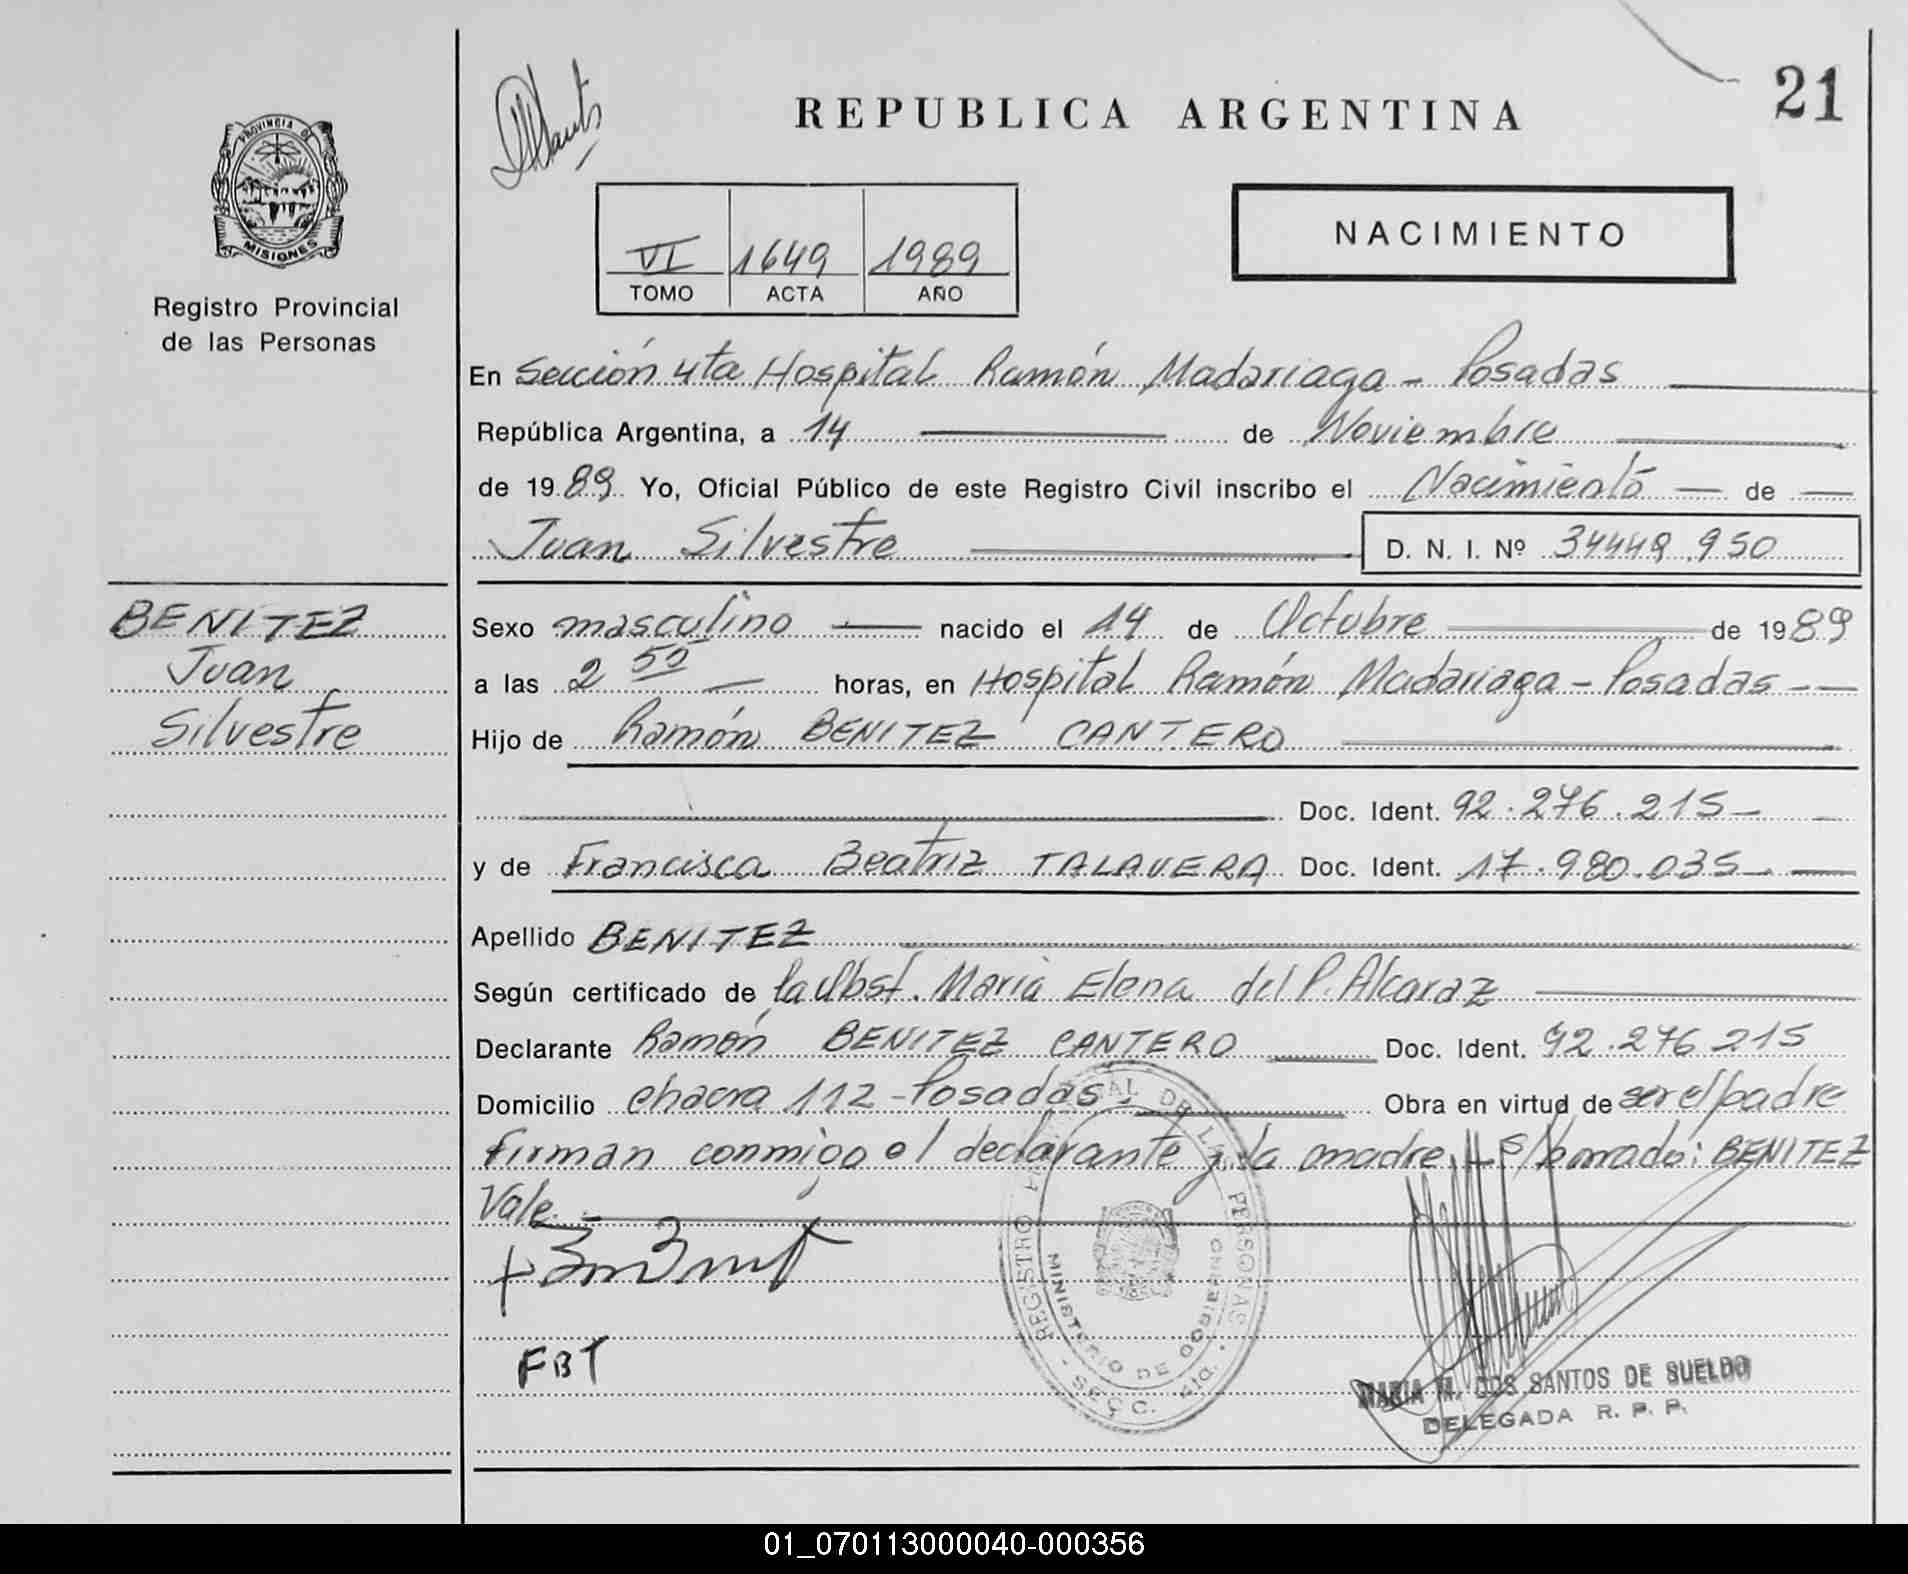 REPUBLICA ARGENTINA
21
PROVINCIA DE
MISIONES
Registro Provincial
de las Personas
VI 1649 1989
TOMO ACTA AÑO
NACIMIENTO
En Sección 4ta Hospital Ramón Madariaga - Posadas
República Argentina, a 14 de Noviembre
de 1989 Yo, Oficial Público de este Registro Civil inscribo el Nacimiento de
Juan Silvestre D. N. I. Nº 34448.950
BENITEZ
Juan
Silvestre
Sexo masculino nacido el 14 de Octubre de 1989
a las 2 50 horas, en Hospital Ramón Madariaga - Posadas
Hijo de Ramón BENITEZ CANTERO
Doc. Ident. 92.276.215
y de Francisca Beatriz TALAVERA Doc. Ident. 17.980.035
Apellido BENITEZ
Según certificado de la Obst. Maria Elena del P. Alcaraz
Declarante Ramón BENITEZ CANTERO Doc. Ident. 92.276.215
Domicilio chacra 112 - Posadas. Obra en virtud de ser el padre
Firman conmigo el declarante y la madre s/borrado: BENITEZ
Vale.
FBT
REGISTRO PROVINCIAL DE LAS PERSONAS
MINISTERIO DE GOBIERNO
SECC. 4ta.
MARIA M. DOS SANTOS DE SUELDO
DELEGADA R. P. P.
01_070113000040-000356